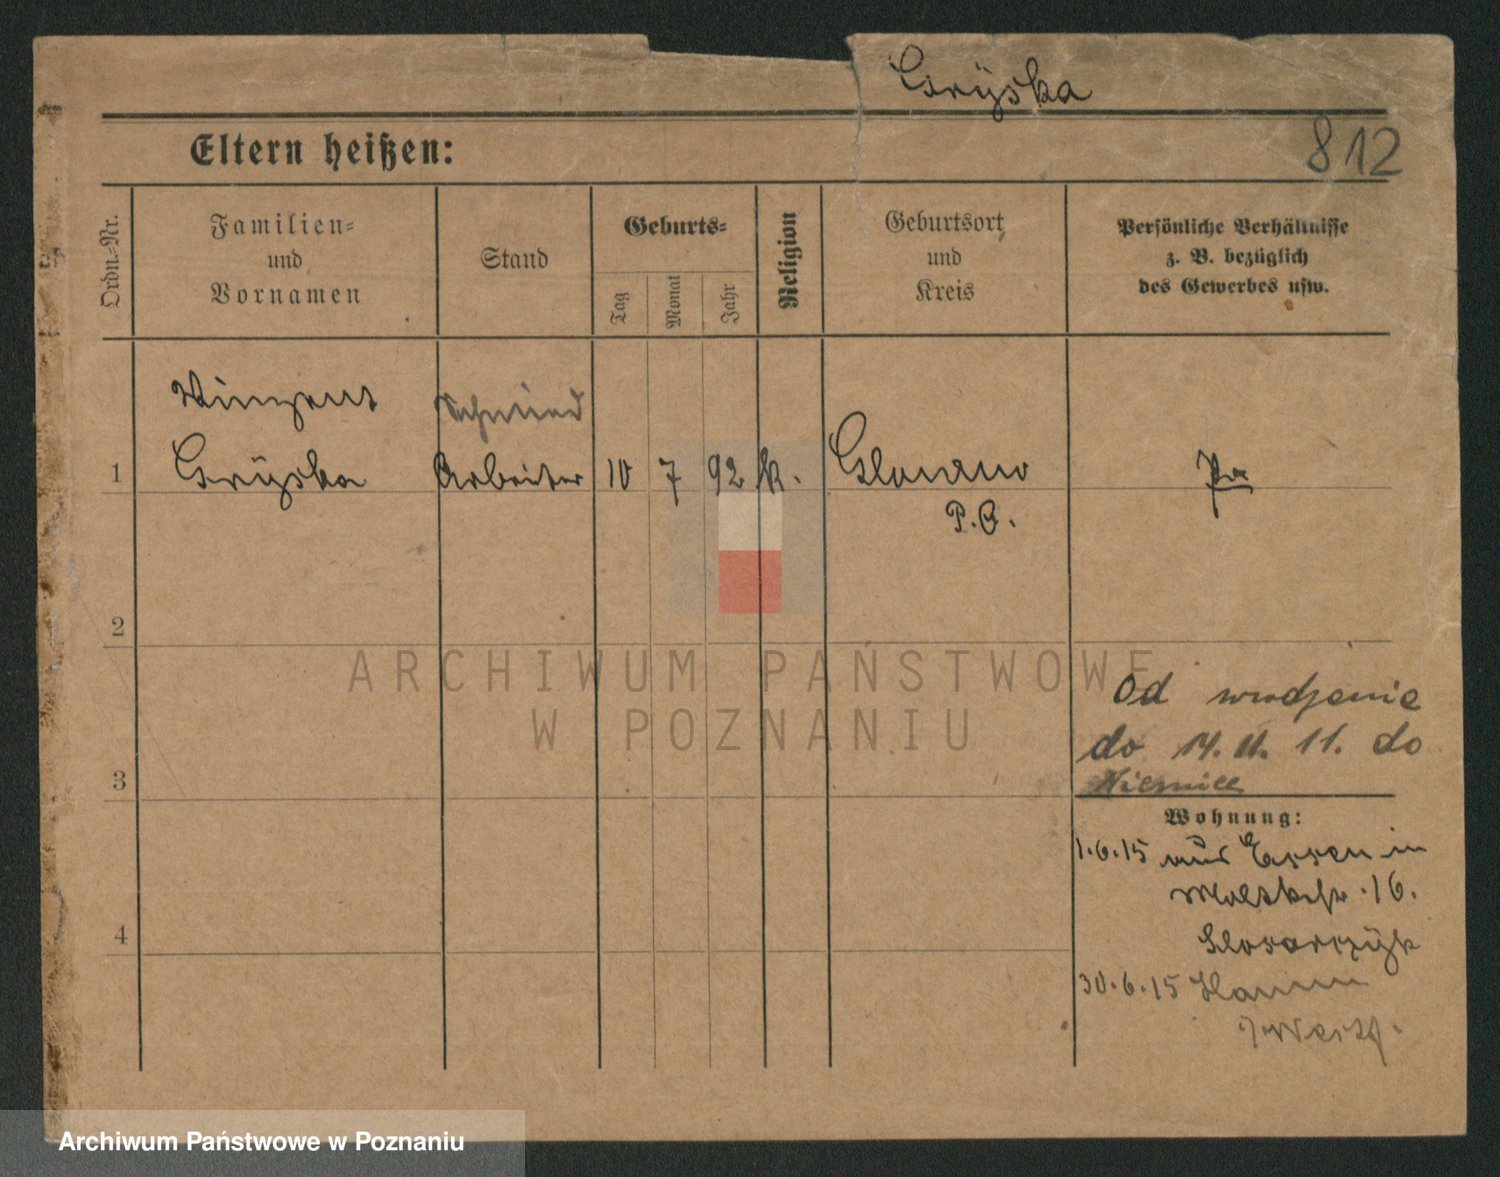 Gryska
Eltern heißen:
812
Ordn.-Nr.
Familien-
und
Vornamen
Stand
Geburts-
Tag
Monat
Jahr
Religion
Geburtsort
und
Kreis
Persönliche Verhältnisse
z. B. bezüglich
des Gewerbes usw.
Vinzent
Schmied
1
Gryska
Arbeiter
10
7
92
k.
P. O.
2
ARCHIWUM PAŃSTWOWE
W POZNANIU
Od urodzenia
do 14. 11. 11. do
3
Wohnung:
1.6.15 aus Essen in
16.
4
30.6.15 Hamm
i/Westf.
Archiwum Państwowe w Poznaniu